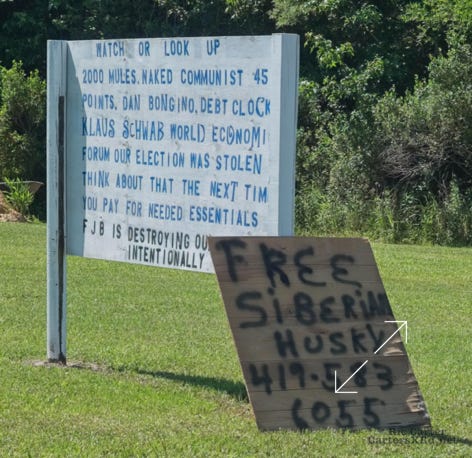 WATCH OR LOOK UP
2000 MULES, NAKED COMMUNIST '45
POINTS, DAN BONGINO, DEBT CLOCK
KLAUS SCHWAB WORLD ECONOMI
FORUM OUR ELECTION WAS STOLEN
THINK ABOUT THAT THE NEXT TIM
YOU PAY FOR NEEDED ESSENTIALS
FJB IS DESTROYING OU
INTENTIONALLY
FREE
SIBERIAN
HUSKY
6055
CartersXRd.net